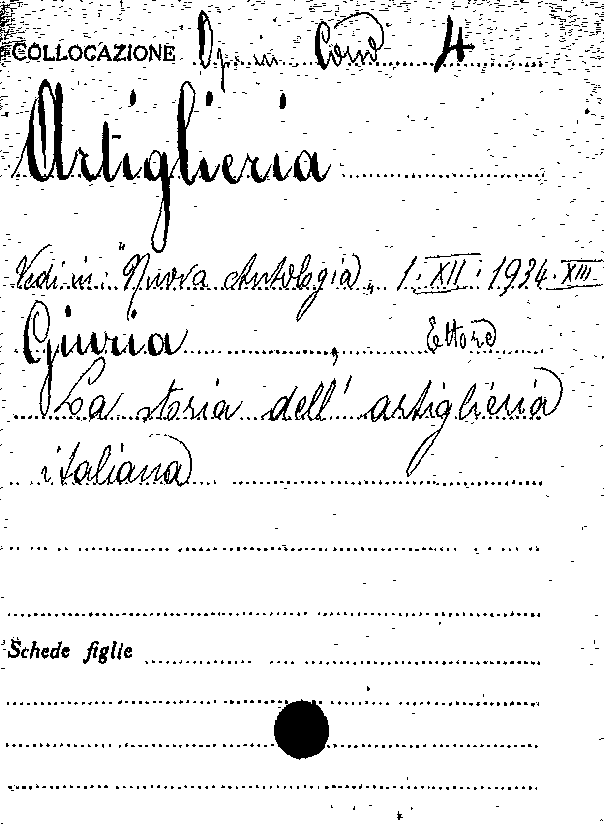 COLLOCAZIONE Op. in Cons 4
Artiglieria
Vedi in: "Nuova Antologia„ 1. XII. 1934. XIII
Giuria , Ettore
La storia dell' artiglieria
italiana
Schede figlie